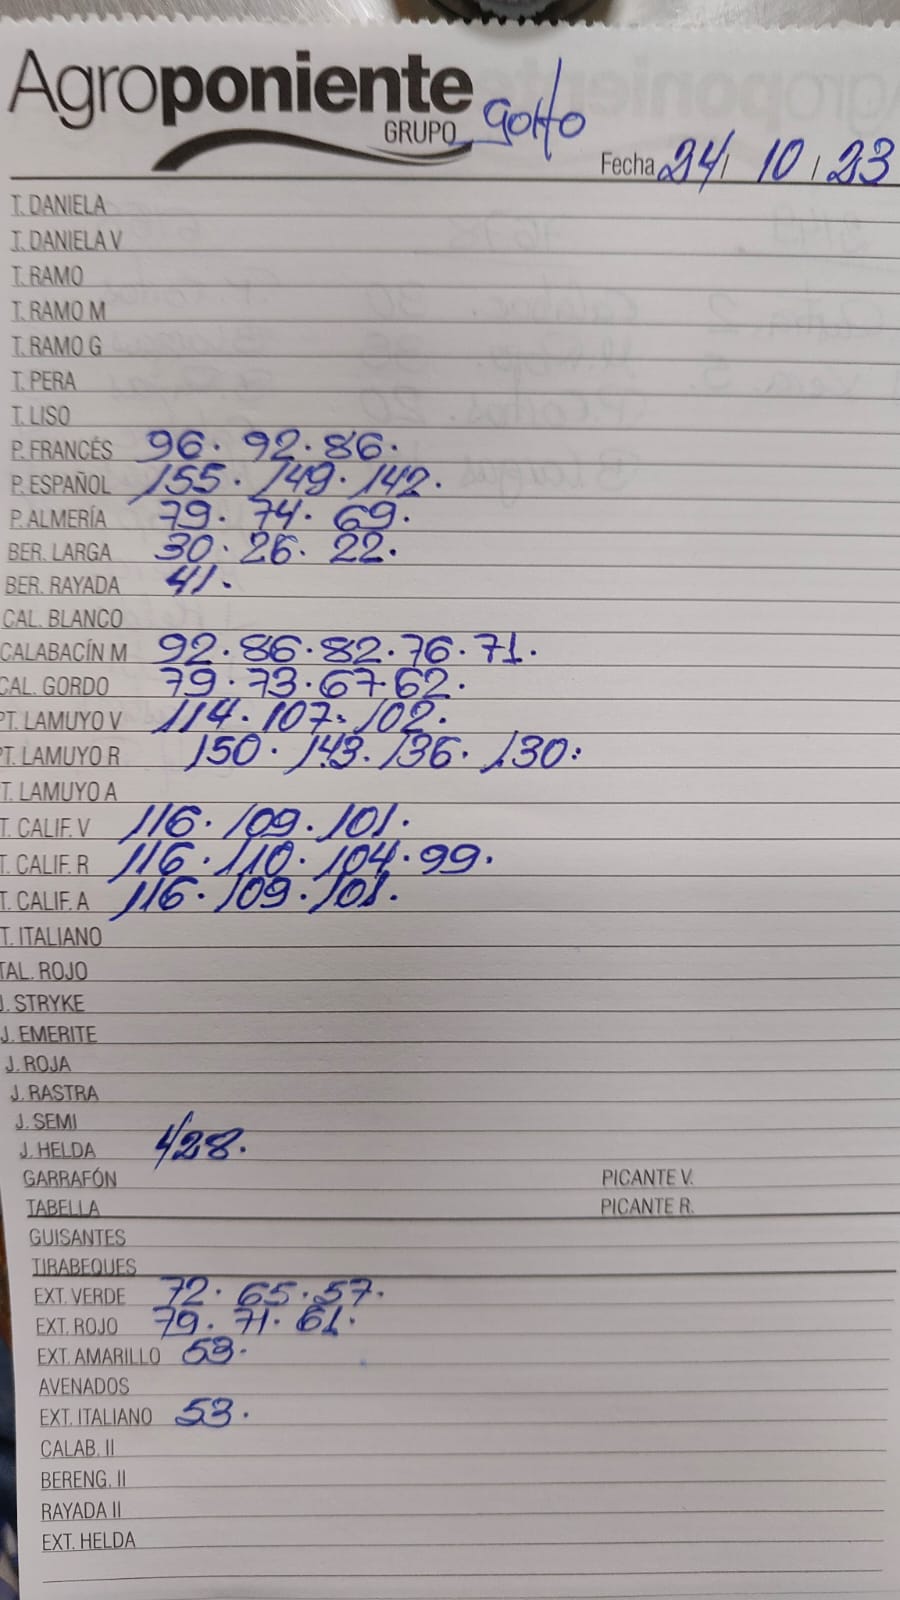 Agroponiente
GRUPO Golfo
Fecha 24/ 10 / 23
T. DANIELA
T. DANIELA V
T. RAMO
T. RAMO M
T. RAMO G
T. PERA
T. LISO
P. FRANCÉS 96. 92. 86.
P. ESPAÑOL 155. 149. 142.
P. ALMERÍA 79. 74. 69.
BER. LARGA 30. 26. 22.
BER. RAYADA 41.
CAL. BLANCO
CALABACÍN M 92. 86. 82. 76. 71.
CAL. GORDO 79. 73. 67. 62.
PT. LAMUYO V 114. 107. 102.
PT. LAMUYO R 150. 143. 136. 130.
T. LAMUYO A
T. CALIF. V 116. 109. 101.
T. CALIF. R 116. 110. 104. 99.
T. CALIF. A 116. 109. 101.
T. ITALIANO
TAL. ROJO
J. STRYKE
J. EMERITE
J. ROJA
J. RASTRA
J. SEMI
J. HELDA 428.
GARRAFÓN PICANTE V.
TABELLA PICANTE R.
GUISANTES
TIRABEQUES
EXT. VERDE 72. 65. 57.
EXT. ROJO 79. 71. 61.
EXT. AMARILLO 53.
AVENADOS
EXT. ITALIANO 53.
CALAB. II
BERENG. II
RAYADA II
EXT. HELDA